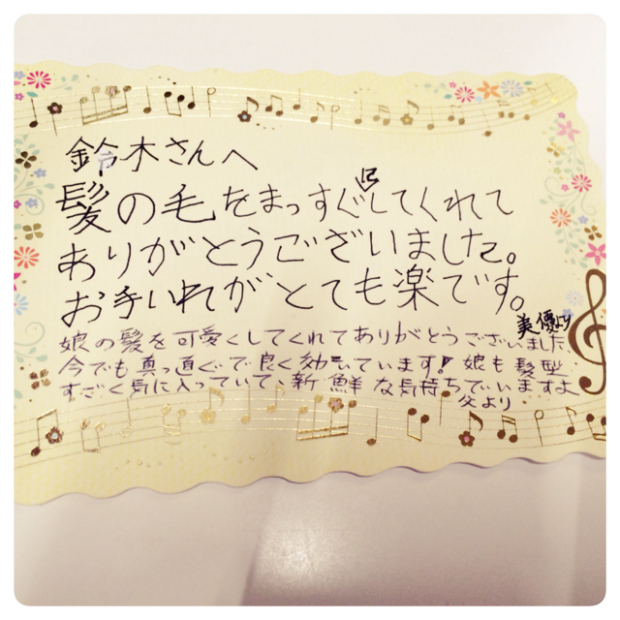 鈴木さんへ
髪の毛をまっすぐにしてくれて
ありがとうございました。
お手いれがとても楽です。
美優より
娘の髪を可愛くしてくれてありがとうございました
今でも真っ直ぐで良く効いています!娘も髪型
すごく気に入っていて、新鮮な気持ちでいますよ
父より